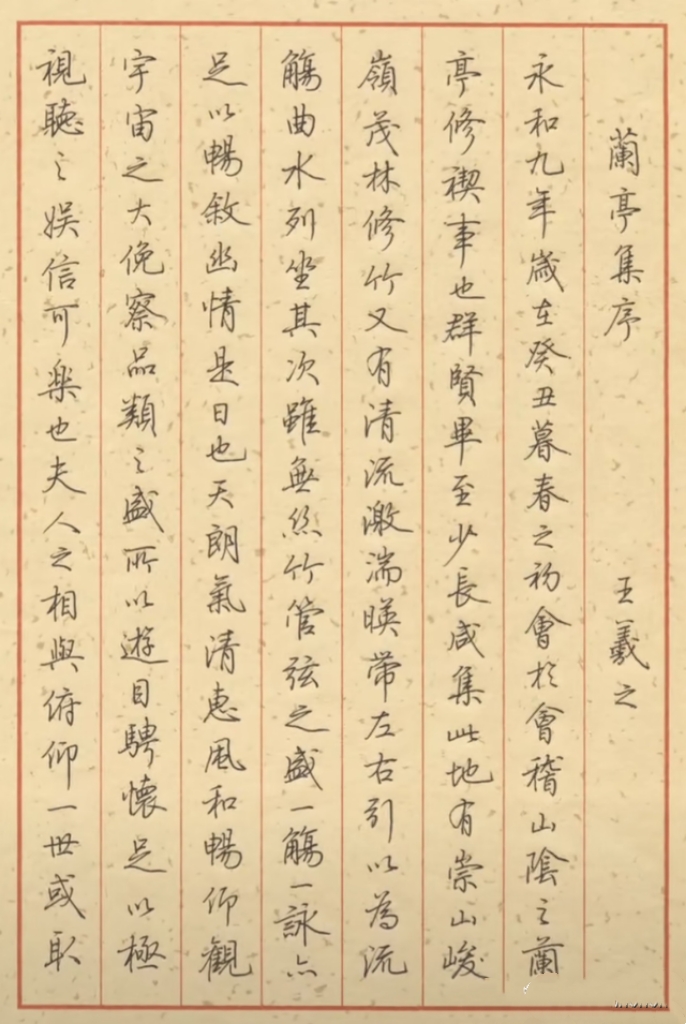 蘭亭集序 王羲之
永和九年歲在癸丑暮春之初會於會稽山陰之蘭
亭修禊事也群賢畢至少長咸集此地有崇山峻
嶺茂林修竹又有清流激湍暎帶左右引以為流
觴曲水列坐其次雖無絲竹管弦之盛一觴一詠亦
足以暢敘幽情是日也天朗氣清惠風和暢仰觀
宇宙之大俛察品類之盛所以遊目騁懷足以極
視聽之娛信可樂也夫人之相與俯仰一世或取